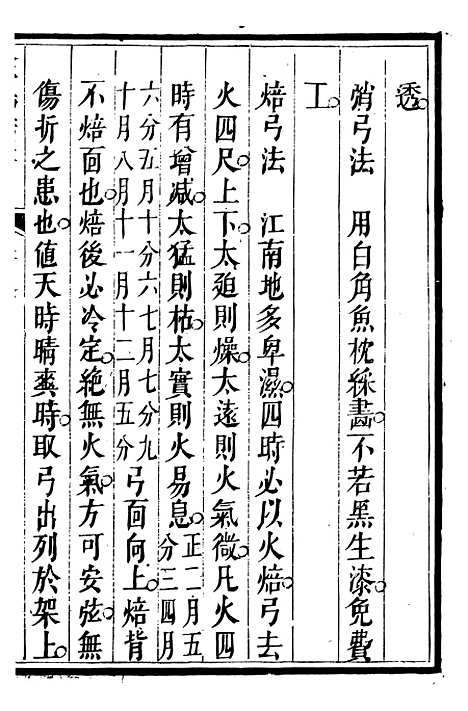 透。
弰弓法　用白角魚枕綵畵。不若黑生漆。免費
工。
焙弓法　江南地多卑濕。四時必以火焙弓。去
火四尺。上下太廹則燥。太遠則火氣微。凡火四
時有增减。太猛則枯。太實則火易息。正二月五分三四月
六分五月十分六七月七分九十月八月十一月十二月五分弓面向上。焙背
不焙面也。焙後必冷定。絶無火氣。方可安弦。無
傷折之患也。値天時晴爽時。取弓出列於架上。